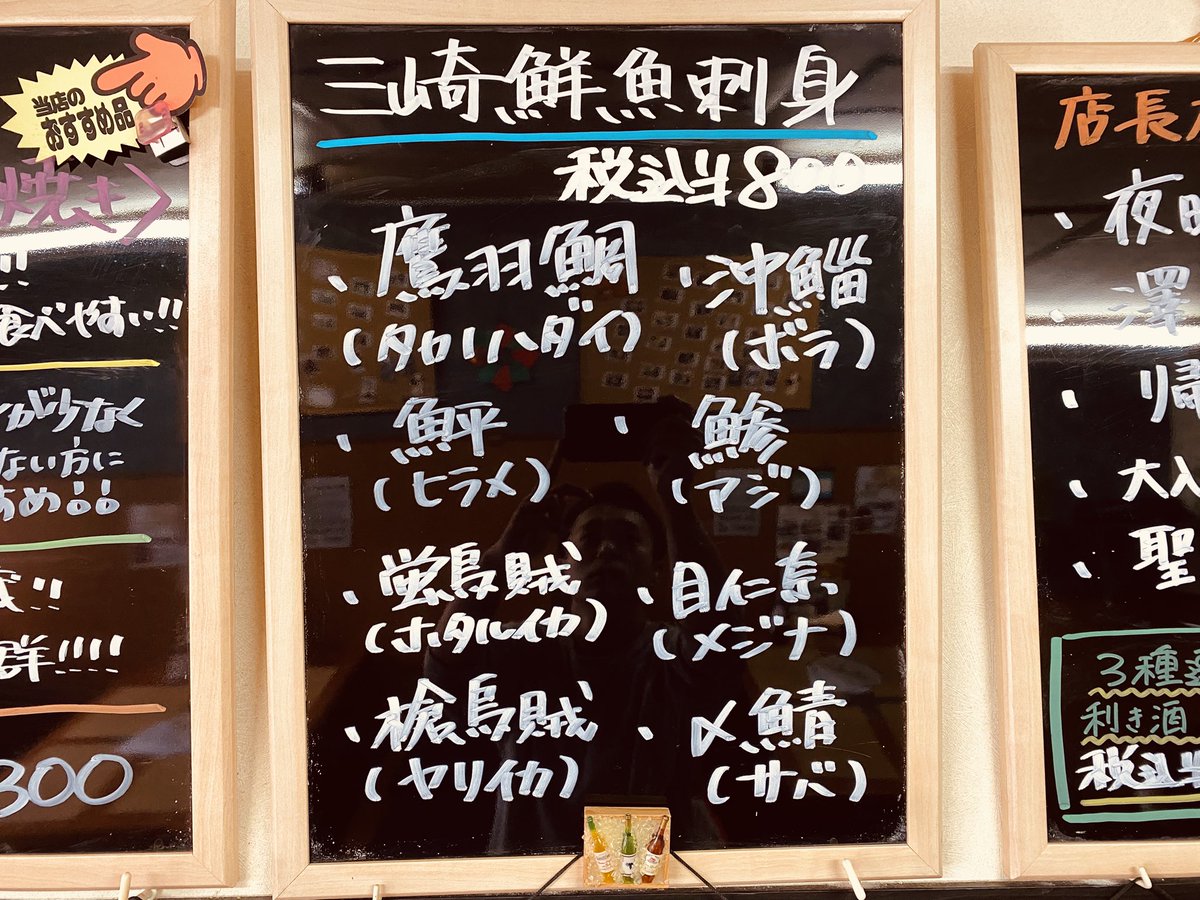 当店の
おすすめ品
焼き〉
食べやすい!!
ない方に
群!!!!
三崎鮮魚刺身
税込¥800
・鷹羽鯛
(タカノハダイ)
・沖鯔
(ボラ)
・鮃
(ヒラメ)
・鯵
(アジ)
・蛍烏賊
(ホタルイカ)
・目仁奈
(メジナ)
・槍烏賊
(ヤリイカ)
・〆鯖
(サバ)
店長
・夜
・澤
・
・大入
・聖
3種
利き酒
税込¥